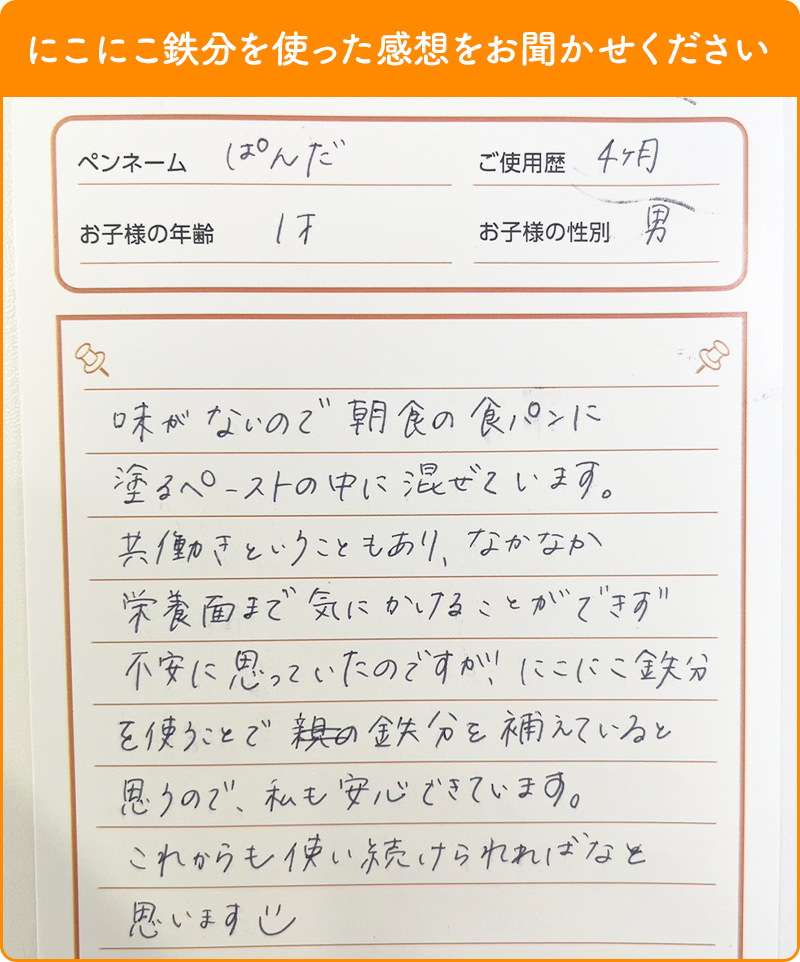 にこにこ鉄分を使った感想をお聞かせください
ペンネーム ぱんだ ご使用歴 4ヶ月
お子様の年齢 1才 お子様の性別 男
味がないので朝食の食パンに
塗るペーストの中に混ぜています。
共働きということもあり、なかなか
栄養面まで気にかけることができず
不安に思っていたのですが、にこにこ鉄分
を使うことで鉄分を補えていると
思うので、私も安心できています。
これからも使い続けられればなと
思います